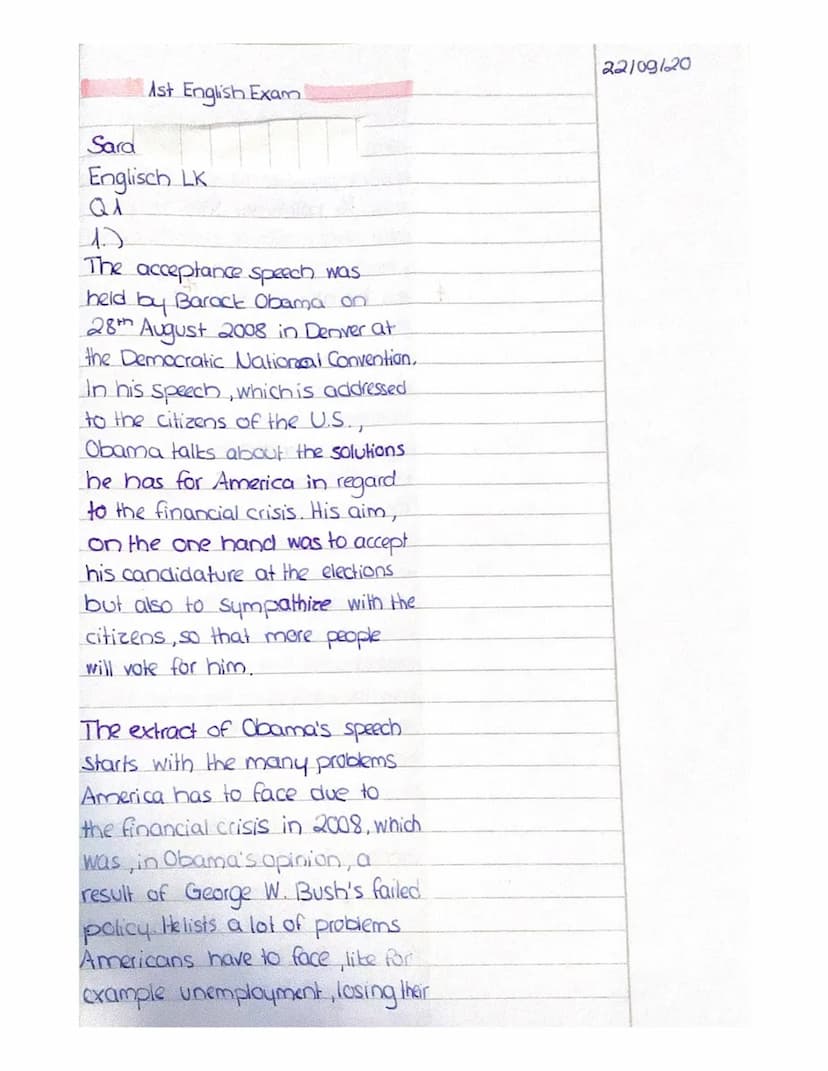 22/09/20
1st English Exam
Sara
Englisch LK
Q1
1.)
The acceptance speech was
held by Barack Obama on
28th August 2008 in Denver at
the Democratic National Convention.
In his speech, which is addressed
to the citizens of the U.S.,
Obama talks about the solutions
he has for America in regard
to the financial crisis. His aim,
on the one hand was to accept
his candidature at the elections
but also to sympathize with the
citizens, so that more people
will vote for him.
The extract of Obama's speech
starts with the many problems
America has to face due to
the financial crisis in 2008, which
was, in Obama's opinion, a
result of George W. Bush's failed
policy. He lists a lot of problems
Americans have to face, like for
example unemployment, losing their